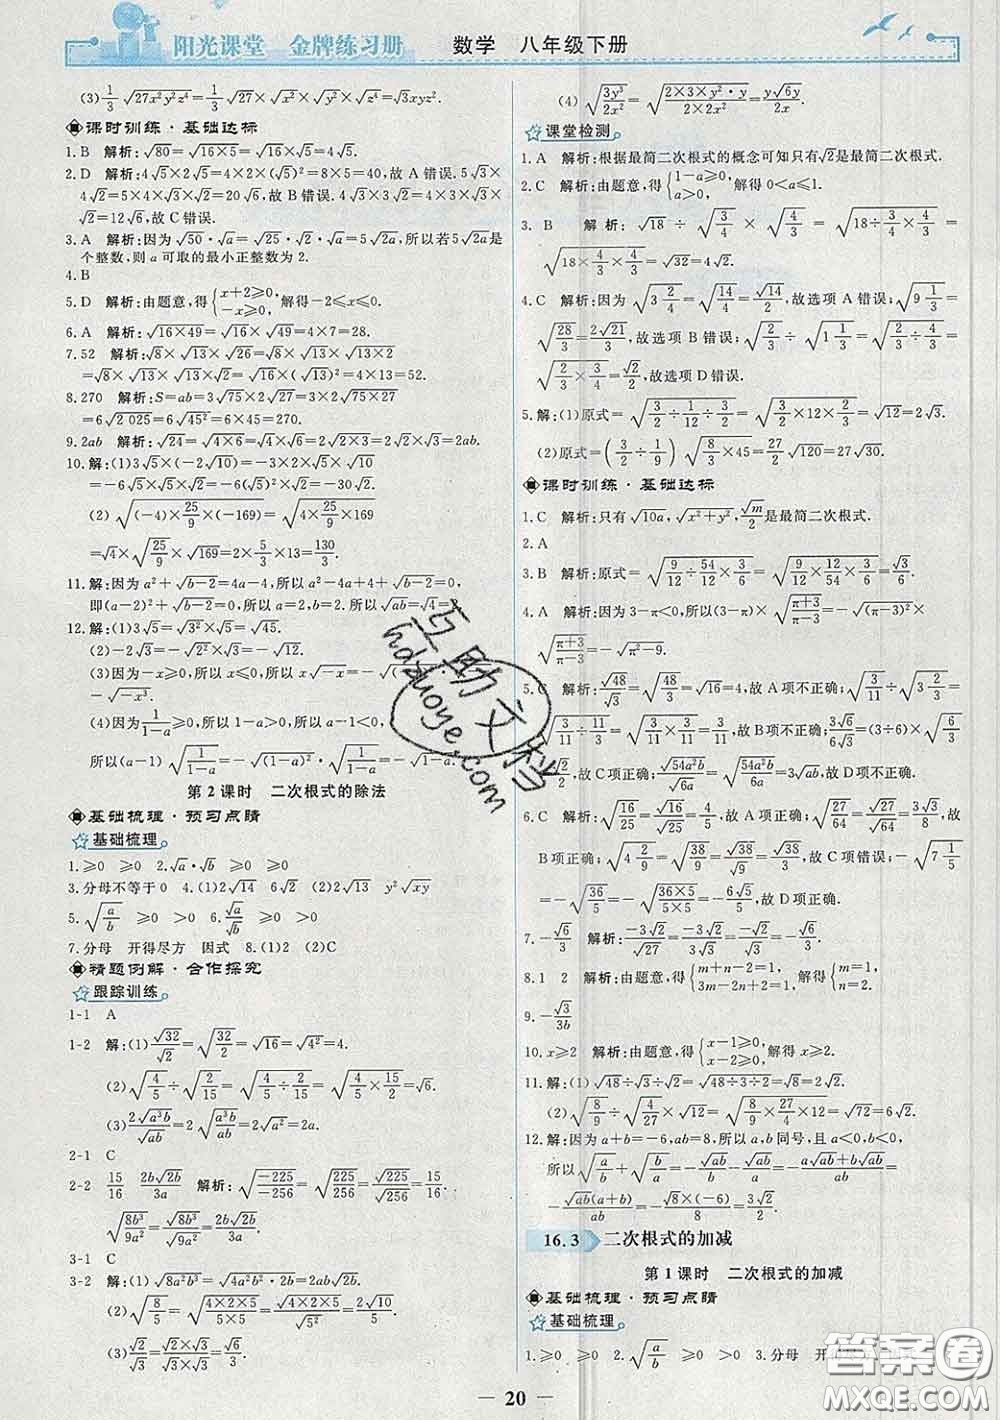 阳光课堂 金牌练习册 数学 八年级下册
(3)1/3√27x²y²z⁴=1/3√27×√x²×√y²×√z⁴=√3xyz².
课时训练·基础达标
1.B 解析:√80=√16×5=√16×√5=4√5.
2.D 解析:4√5×2√5=4×2×(√5)²=8×5=40,故A错误.5√3×
4√2=5×4×√3×√2=20√6,故B错误.4√3×3√2=4×3×√3×
√2=12√6,故C错误.
3.A 解析:因为√50·√a=√25·√2·√a=5√2a,所以若5√2a是
个整数,则a可取的最小正整数为2.
4.B
5.D 解析:由题意,得{x+2≥0, -x≥0, 解得-2≤x≤0.
6.A 解析:√16×49=√16×√49=4×7=28.
7.52 解析:√8×√13×√26=√8×√13×√13×2
=√8×√13×√13×√2=√16×(√13)²=4×13=52.
8.270 解析:S=ab=3√75×2√27=3×2√75×27
=6√2 025=6√45²=6×45=270.
9.2ab 解析:√24=√4×6=√4×√6=2√2×3=2√2×√3=2ab.
10.解:(1)3√5×(-2√10)=-3×2×√5×√10
=-6√5×√5×√2=-6×(√5)²×√2=-30√2.
(2)√(-4)×25/9×(-169)=√4×25/9×169
=√4×√25/9×√169=2×5/3×13=130/3.
11.解:因为a²+√b-2=4a-4,所以a²-4a+4+√b-2=0,
即(a-2)²+√b-2=0,所以a=2,b=2.所以√ab=√4=2.
12.解:(1)3√5=√3²×√5=√45.
(2)-2√3=-√2²×√3=-√12.
(3)因为-x≥0,所以x≤0,所以x√-x=-√
-√-x³.
(4)因为1/1-a≥0,所以1-a>0,所以a-1<0.
所以(a-1)√1/1-a=-√(1-a)²·√1/1-a=-√1-a.
第2课时 二次根式的除法
基础梳理·预习点睛
基础梳理
1.≥0 ≥0 2.√a·√b ≥0 ≥0
3.分母不等于0 4.(1)2√14 6√2 (2)2√14 y²√xy
5.√a/b ≥0 >0 6.√a/√b ≥0 >0
7.分母 开得尽方 因式 8.(1)2 (2)C
精题例解·合作探究
跟踪训练
1-1 A
1-2 解:(1)√32/√2=√32/2=√16=√4²=4.
(2)√4/5÷√2/15=√4/5÷2/15=√4/5×15/2=√6.
(3)2√a³b/√ab=2√a³b/ab=2√a²=2a.
2-1 C
2-2 15/16 2b√2b/3a 解析:√-225/-256=√225/256=√225/√256=15/16.
√8b³/9a²=√8b³/√9a²=2b√2b/3a.
3-1 C
3-2 解:(1)√8a²b³=√4a²b²·2b=2ab√2b.
(2)√8/5=√4×2×5/5×5=√4×2×5/√5×5=2√10/5.
(3)√2/√3=√2×√3/√3×√3=√6/3.
(4)√3y³/2x²=√(2×3×y²·y)/2×2x²=y√6y/2x.
课堂检测
1.A 解析:根据最简二次根式的概念可知只有√2是最简二次根式.
2.C 解析:由题意,得{1-a≥0, a>0, 解得0<a≤1.
3.B 解析:√18÷√3/4×√4/3=√18÷3/4×4/3=
√18×4/3×4/3=√32=4√2.
4.C 解析:因为√3 2/4=√14/4=√14/2,故选项A错误;√9 1/3=
√28/3=2√21/3,故选项B错误;√2/3÷√1 1/3=
√2/3×3/4=√2/2,故选项D错误.
5.解:(1)原式=√3/2÷1/12÷2/3=√3/2×12×3/2
(2)原式=(3/2÷1/9)√8/3×45=27/2√120=27√30.
课时训练·基础达标
1.C 解析:只有√10a,√x²+y²,√m/2是最简二次根式.
2.A
3.B 解析:原式=√9/12÷54/12×3/6=√9/12×12/54×3/6=√3/6.
4.A 解析:因为3-π<0,所以(3-π)×√π+3/π-3=-√(π-3)²×
√π+3/π-3=-√π²-9.
5.C 解析:√48/√3=√48/3=√16=4,故A项不正确;√3/11÷√3 2/3=
√3/11÷11/3=√3/11×3/11=3/11,故B项不正确;3√6/6√3=(3÷6)×√6/3=
√2/2,故C项正确;√54a²b/√6a=√54a²b/6a=3√ab,故D项不正确.
6.C 解析:√16/25=√16/√25=4/5,故A项正确;√27/64=√27/√64=3√3/8,故
B项正确;√4 2/9=√38/9=√38/√9=√38/3,故C项错误;-√7 1/5
=-√36/5=-√36×5/5×5=-6√5/5,故D项正确.
7.-√6/3 解析:-3√2/√27=-3√2/3√3=-√2/√3=-√6/3.
8.1 2 解析:由题意,得{m+n-2=1, 3m-2n+2=1, 解得{m=1, n=2.
9.-√3/3b
10.x≥2 解析:由题意,得{x-1≥0, x-2≥0, 解得x≥2.
11.解:(1)√48÷√3÷√2=√48÷3÷2=√8=2√2.
(2)√8/9÷√4/27×√12=√8/9×27/4×12=√72=6√2.
12.解:因为a+b=-6,ab=8,所以a,b同号,且a<0,b<0,
所以√a/b+√b/a
-√ab(a+b)/ab=-√8×(-6)/8=3√2/2.
16.3 二次根式的加减
第1课时 二次根式的加减
基础梳理·预习点睛
基础梳理
1.≥0 ≥0 2.√a/b ≥0 >0 3.分母
互助文档
hdzuoye.com
答案圈
MXQE.COM
20